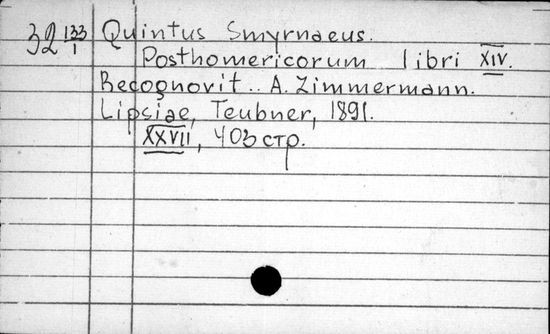 32 133/1 Quintus Smyrnaeus.
Posthomericorum libri XIV.
Recognovit .. A. Zimmermann.
Lipsiae, Teubner, 1891.
XXVII, 403 стр.